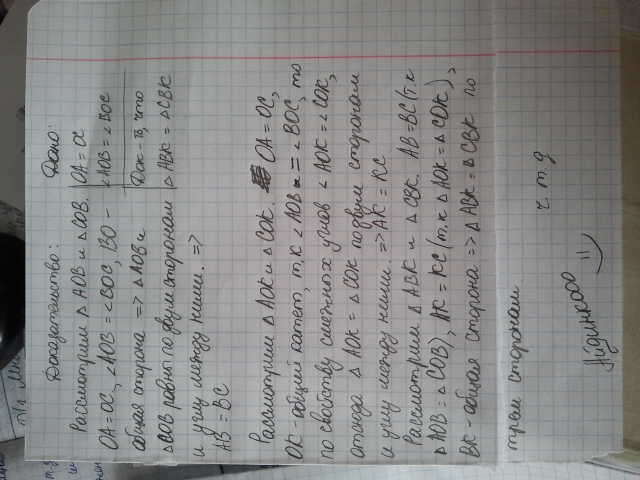 Доказательство:
Рассмотрим △ AOB и △ COB.
OA = OC, ∠AOB = ∠BOC, BO –
общая сторона => △AOB и
△COB равны по двум сторонам
и углу между ними. =>
AB = BC
Дано:
OA = OC
∠AOB = ∠BOC
Док-ть, что
△ABK = △CBK
Рассмотрим △ AOK и △ COK. OA = OC,
OK - общий катет, т.к ∠AOB = ∠BOC, то
по свойству смежных углов ∠AOK = ∠COK,
отсюда △ AOK = △ COK по двум сторонам
и углу между ними. => AK = KC
Рассмотрим △ ABK и △ CBK. AB = BC (т.к
△ AOB = △ COB), AK = KC (т.к △ AOK = △ COK),
BK - общая сторона => △ ABK = △ CBK по
трем сторонам.
ч т д
Айдинкаоо =)